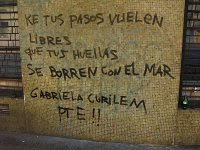 KE TUS PASOS VUELEN
LIBRES
QUE TUS HUELLAS
SE BORREN CON EL MAR
GABRIELA CURILEM
PTE!!